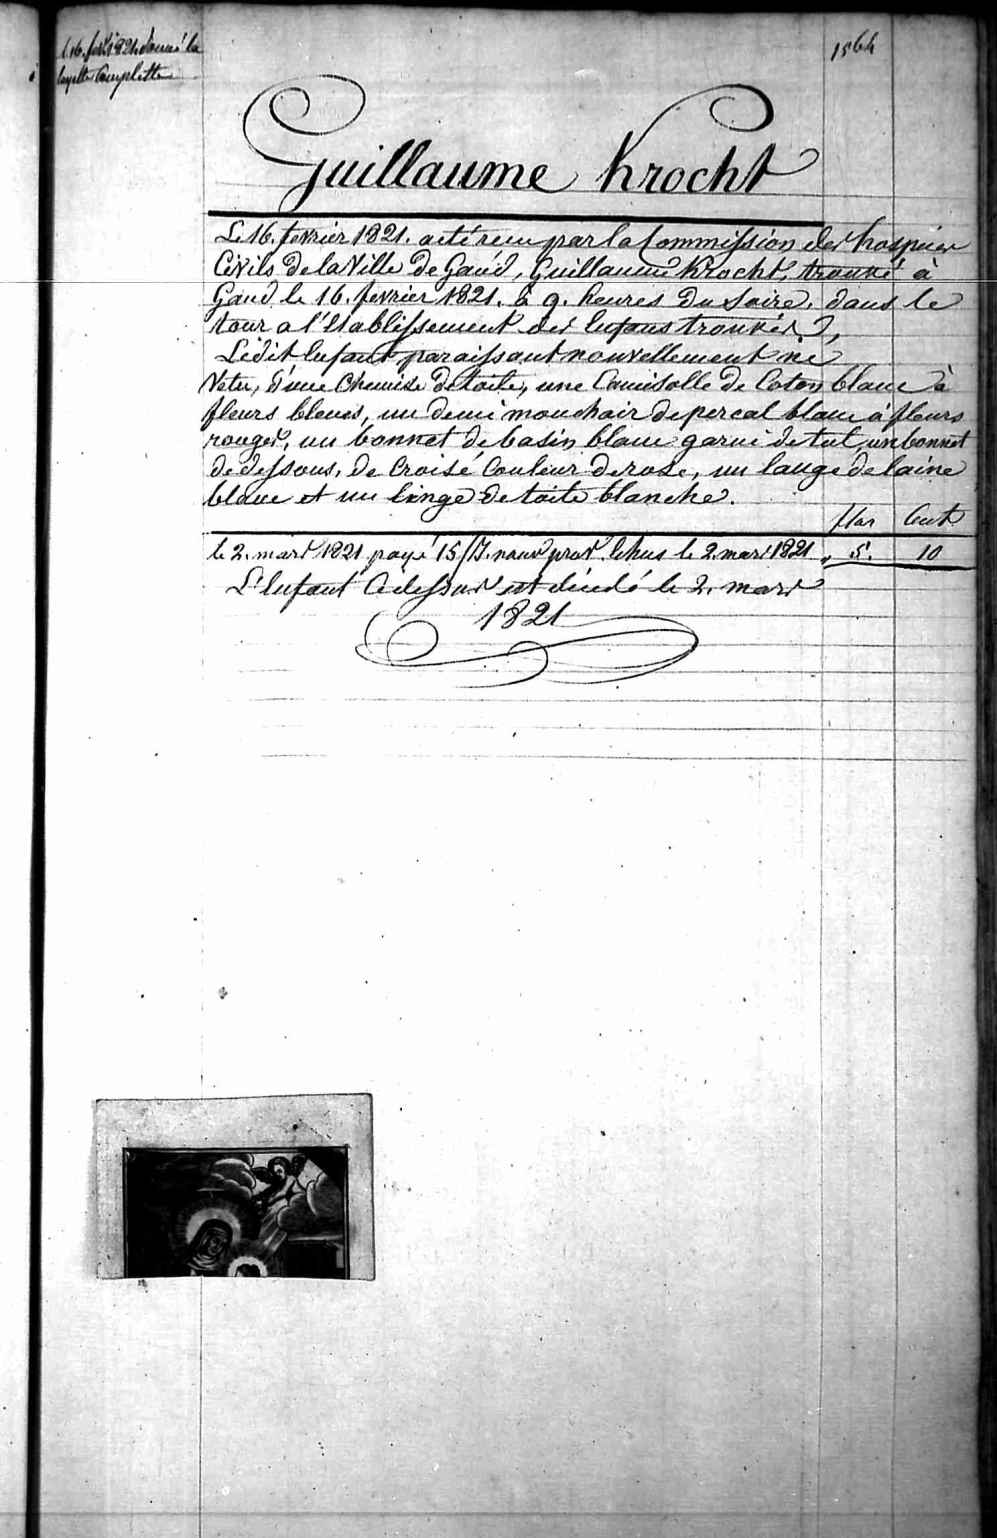 le 16. fevr 1821 donné la
layette Complette
1564
Guillaume Krocht
Le 16. fevrier 1821. a été recu par la Commission des hospices
Civils de la Ville de Gand, Guillaume Krocht, trouvé à
Gand le 16. fevrier 1821. à 9. heures du Soire, dans le
tour a l'Etablissement des Enfans trouvés,
Ledit Enfant paraissant nouvellement né
Vetu, d'une Chemise de toile, une Camisolle de Coton blanc à
fleurs bleues, un demi mouchoir de percal blanc à fleurs
rouges, un bonnet de basin blanc garni de tul, un bonnet
de dessous, de Croisé Couleur de rose, un lange de laine
blanc et un linge de toile blanche.
flor Cent
le 2. mars 1821 payé 15 le 2. mars 1821 „ 5. 10
L'Enfant Cidessus est décédé le 2. mars
1821